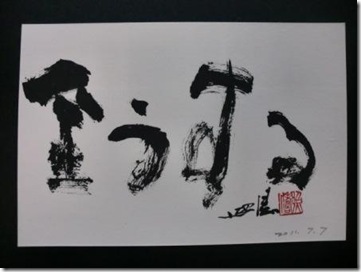 全うする
2011. 7. 7